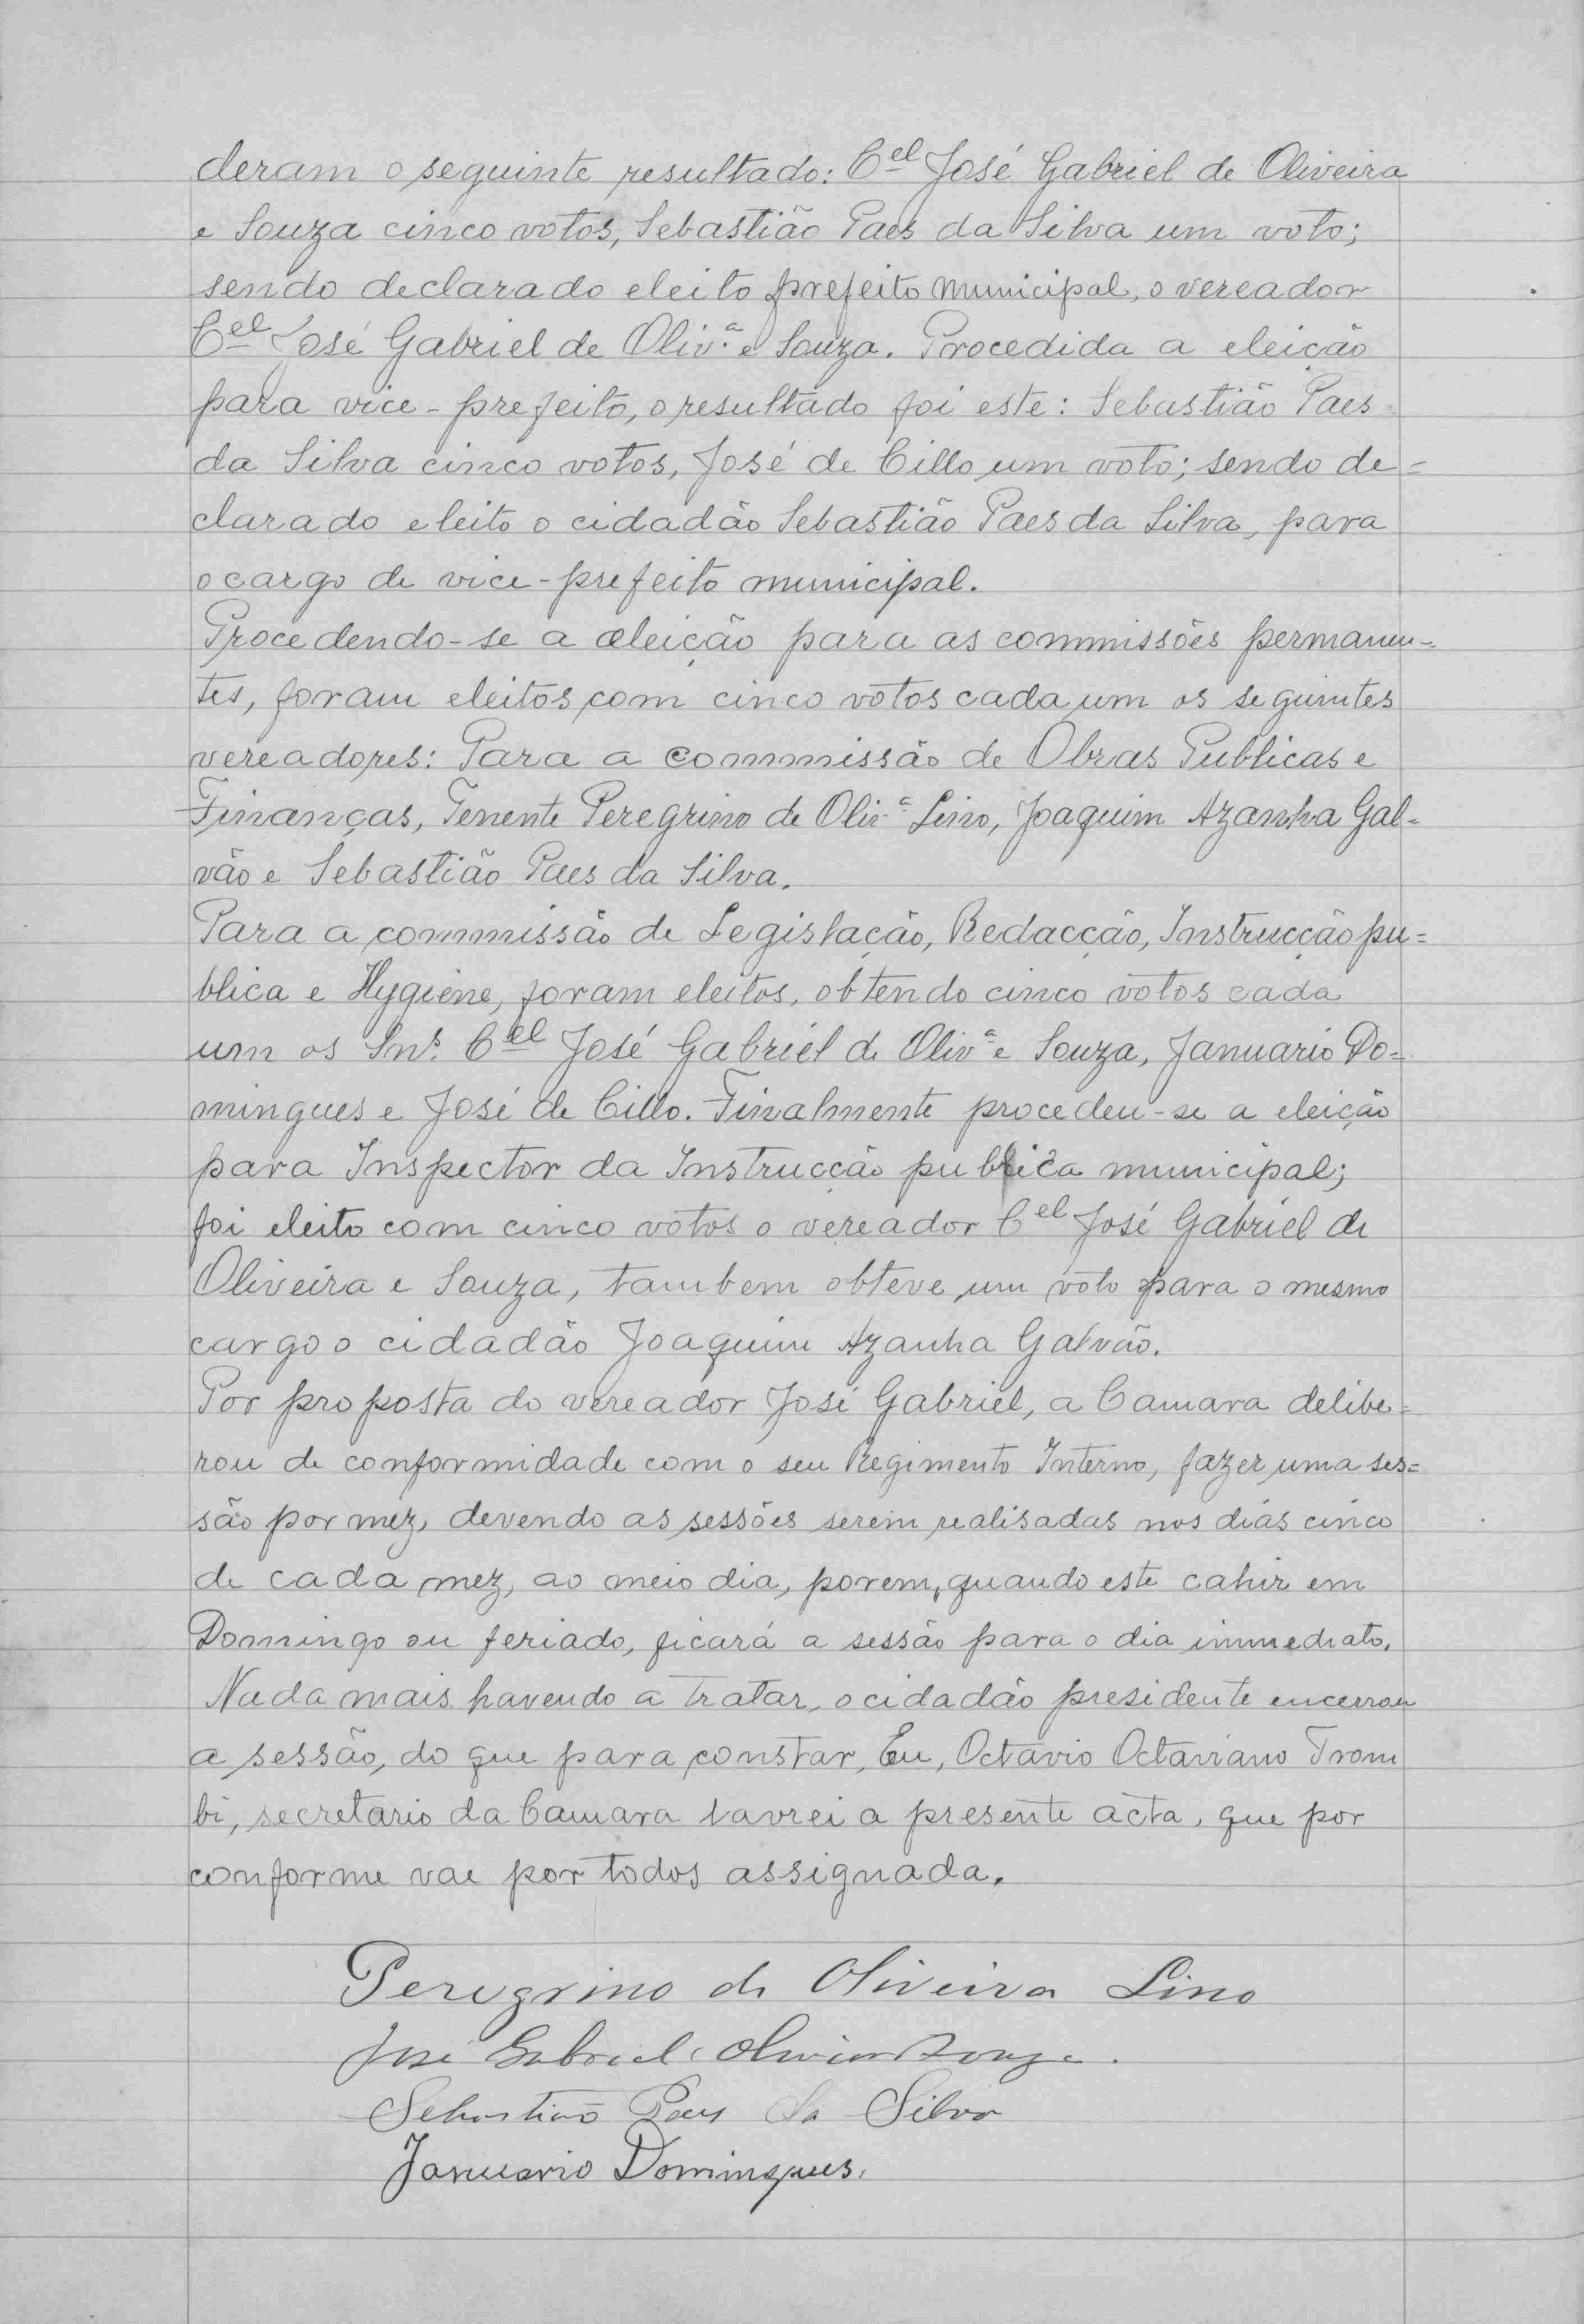 deram o seguinte resultado: Cel José Gabriel de Oliveira
e Souza cinco votos, Sebastião Paes da Silva um voto;
sendo declarado eleito prefeito municipal, o vereador
Cel José Gabriel de Oliv.ª e Souza. Procedida a eleição
para vice-prefeito, o resultado foi este: Sebastião Paes
da Silva cinco votos, José de Cillo um voto; sendo de=
clarado eleito o cidadão Sebastião Paes da Silva, para
o cargo de vice-prefeito municipal.
Procedendo-se a eleição para as commissões permanen=
tes, foram eleitos com cinco votos cada um os seguintes
vereadores: Para a commissão de Obras Publicas e
Finanças, Tenente Peregrino de Olivª Lino, Joaquim Azanha Gal=
vão e Sebastião Paes da Silva.
Para a commissão de Legislação, Redacção, Instrucção pu=
blica e Hygiene, foram eleitos, obtendo cinco votos cada
um os Snrs. Cel José Gabriel de Olivª e Souza, Januario Do=
mingues e José de Cillo. Finalmente procedeu-se a eleição
para Inspector da Instrucção publica municipal;
foi eleito com cinco votos o vereador Cel José Gabriel de
Oliveira e Souza, tambem obteve um voto para o mesmo
cargo o cidadão Joaquim Azanha Galvão.
Por proposta do vereador José Gabriel, a Camara delibe=
rou de conformidade com o seu Regimento Interno, fazer uma ses=
são por mez, devendo as sessões serem realisadas nos dias cinco
de cada mez, ao meio dia, porem, quando este cahir em
Domingo ou feriado, ficará a sessão para o dia immediato.
Nada mais havendo a tratar, o cidadão presidente encerrou
a sessão, do que para constar, Eu, Octavio Octaviano Trom
bi, secretario da Camara lavrei a presente acta, que por
conforme vae por todos assignada.
Peregrino de Oliveira Lino
José Gabriel Oliveira Souza.
Sebastião Paes da Silva
Januario Domingues.